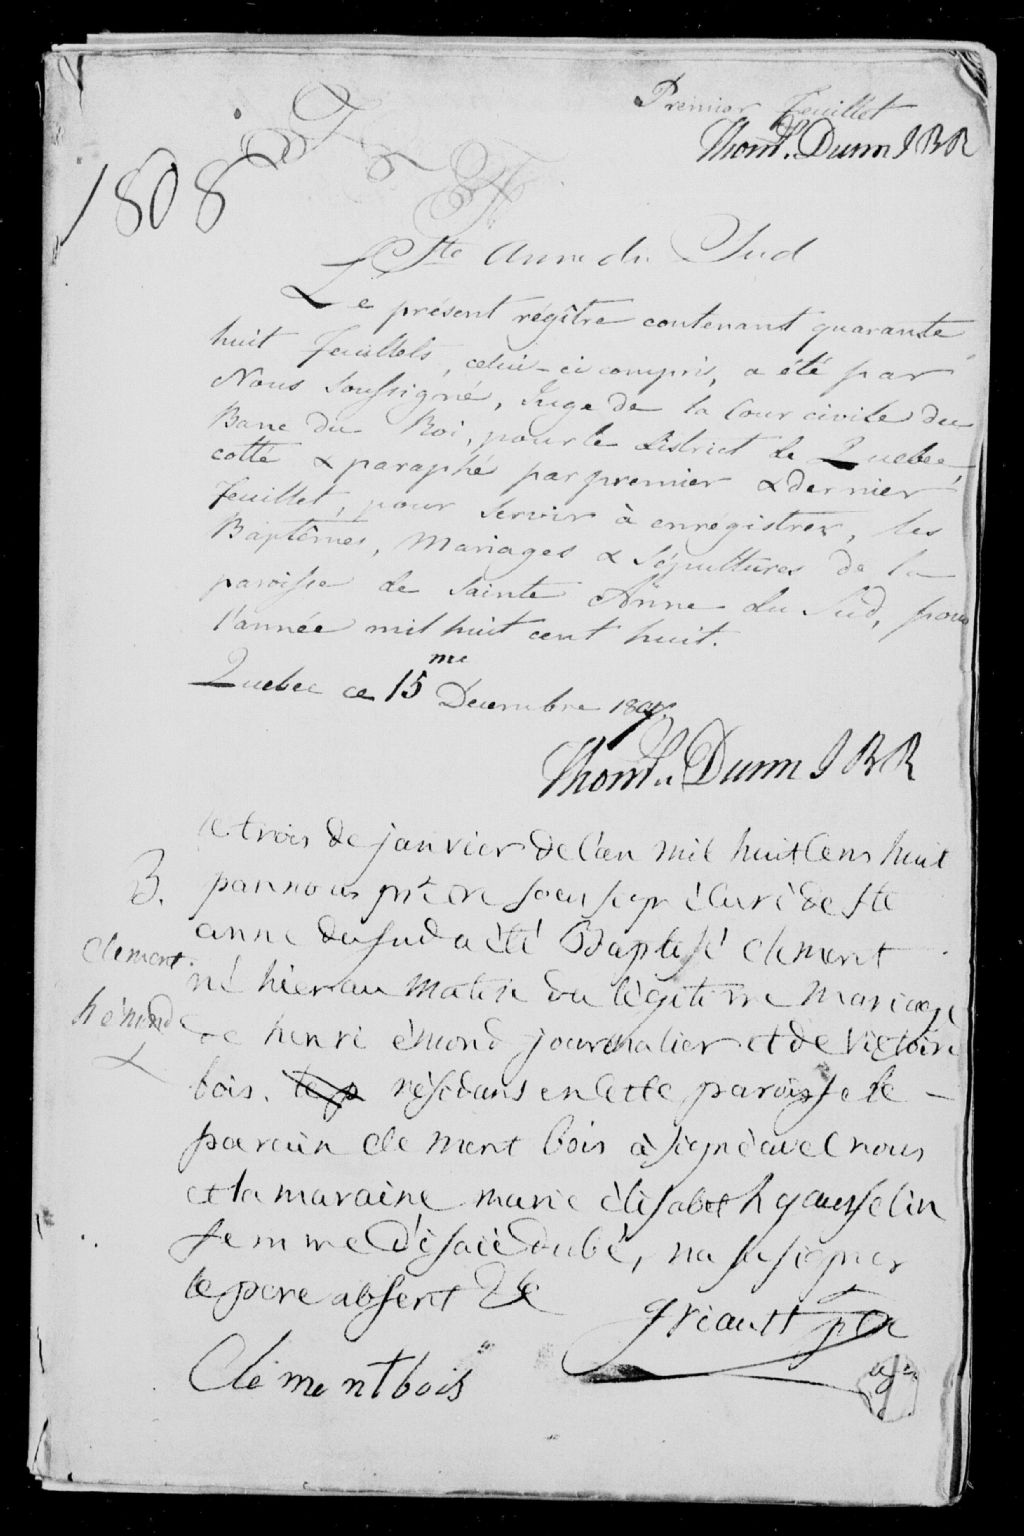 Premier feuillet
Thoms. Dunn J B R
1808
Ste Anne du Sud
Le présent régître contenant quarante
huit feuillets, celui-ci compris, a été par
Nous Soussigné, Juge de la Cour civile du
Banc du Roi, pour le District de Quebec
cotté & paraphé par premier & dernier
feuillet, pour servir à enrégistrer, les
Baptêmes, Mariages & Sépultures de la
paroisse de Sainte Anne du Sud, pour
l'année mil huit cent huit.
Quebec ce 15me Decembre 1807.
Thoms. Dunn J B R
le trois de janvier de l'an mil huit Cens huit
B.
par nous prêtre sousigné Curé de Ste
anne du sud a été Baptisé Clement
Clement
né hier au matin du légitime mariage
hémond
de henri émond journalier et de Victoire
bois. le p résidans en Cette paroisse le
parain Clement bois à signé avec nous
et la maraine marie élisabeth gausselin
femme d'ésaie dubé, na su signer
le pere absent
Clément bois